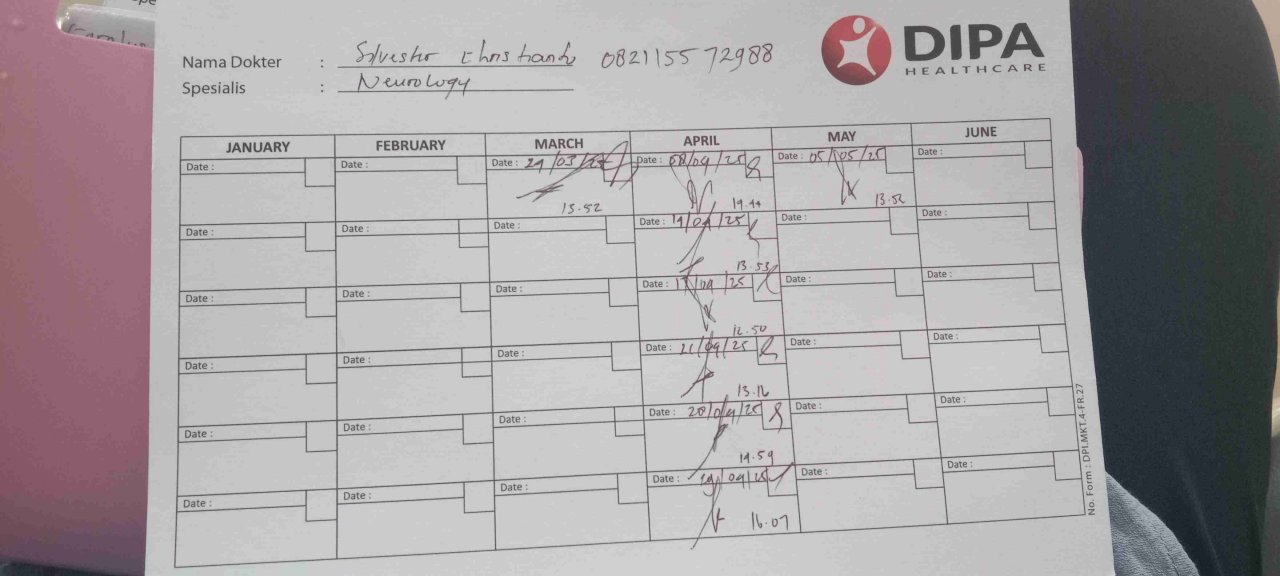 Nama Dokter : Silvester Christanto 082115572988
Spesialis : Neurology
DIPA
HEALTHCARE
JANUARY FEBRUARY MARCH APRIL MAY JUNE
Date : Date : Date : 24/03/25 Date : 08/04/25 Date : 05/05/25 Date :
13.52 14.44 13.52
Date : Date : Date : Date : 14/04/25 Date : Date :
13.53
Date : Date : Date : Date : 17/04/25 Date : Date :
12.50
Date : Date : Date : Date : 21/04/25 Date : Date :
13.12
Date : Date : Date : Date : 28/04/25 Date : Date :
14.59
Date : Date : Date : Date : /04/25 Date : Date :
16.07
No. Form : DPI.MKT.4-FR.27